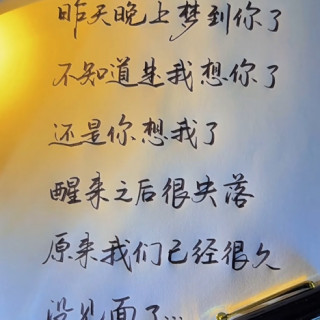 昨天晚上梦到你了
不知道是我想你了
还是你想我了
醒来之后很失落
原来我们已经很久
没见面了...